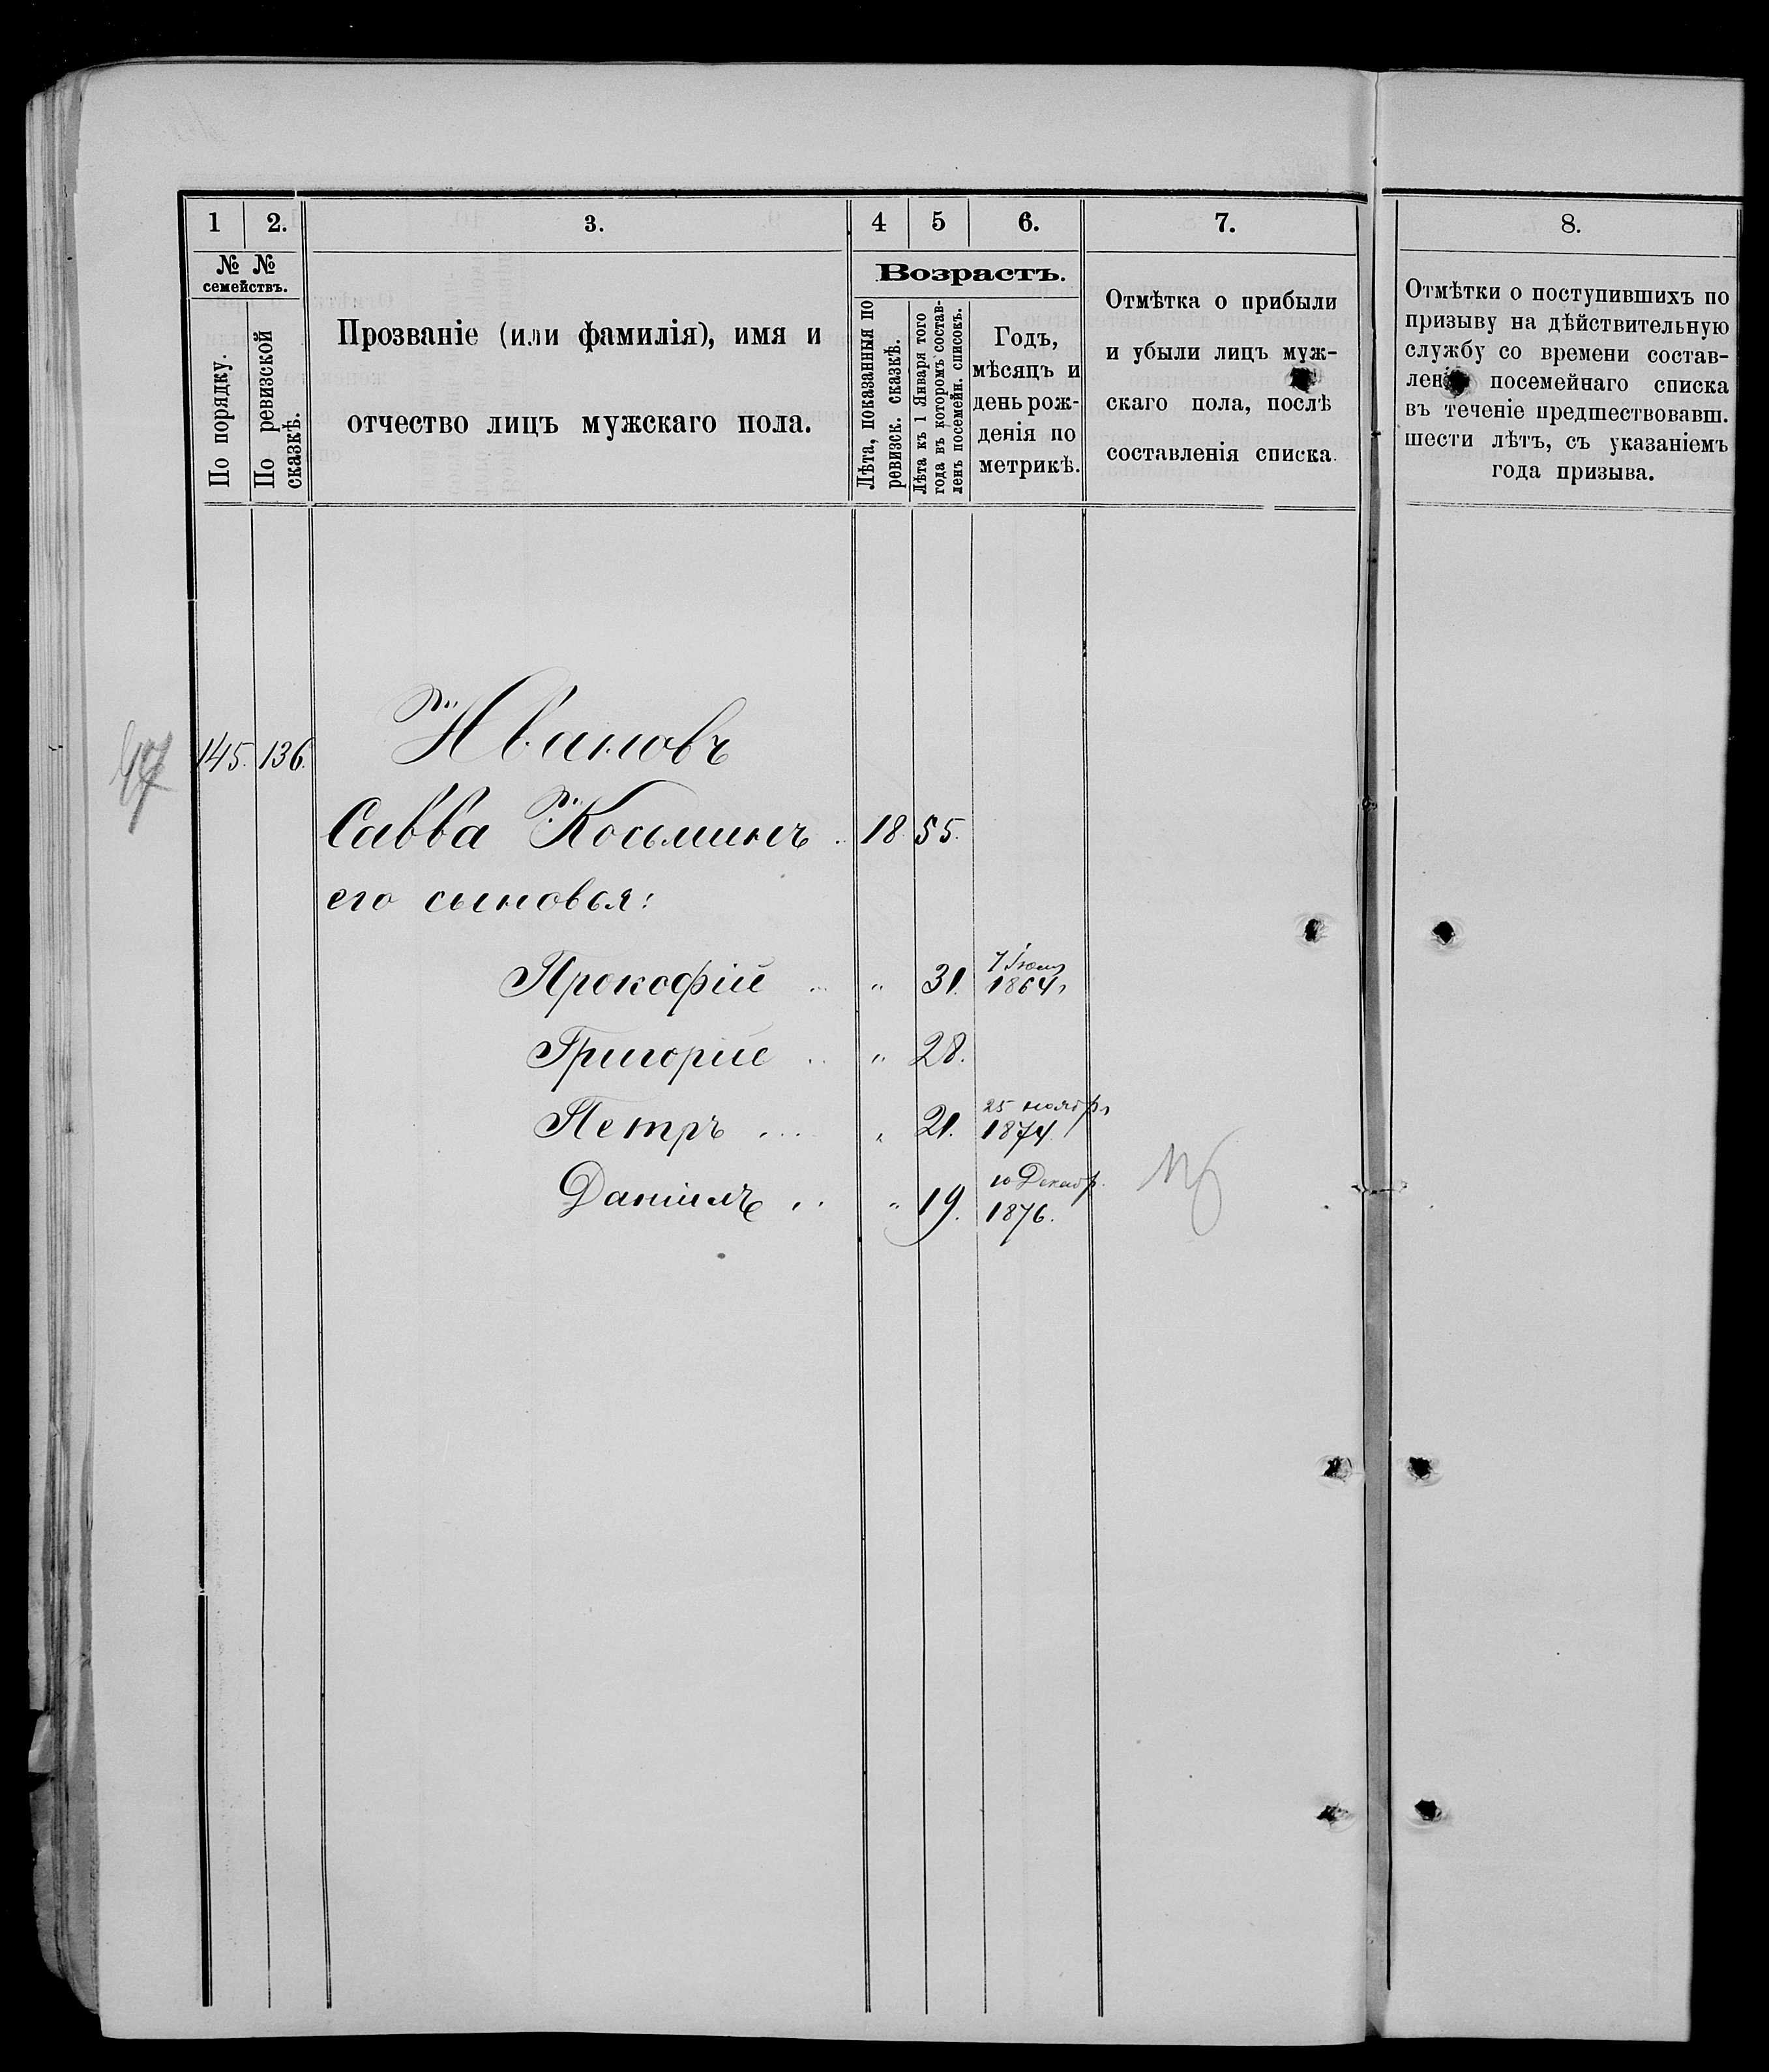 1 2. 3. 4 5 6. 7. 8.
№ № семействъ.
По порядку.
По ревизской сказкѣ.
Прозваніе (или фамилія), имя и
отчество лицъ мужскаго пола.
Возрастъ.
Лѣта, показанныя по
ревизск. сказкѣ.
Лѣта къ 1 Января того
года въ которомъ состав-
ленъ посемейн. списокъ.
Годъ,
мѣсяцъ и
день рож-
денія по
метрикѣ.
Отмѣтка о прибыли
и убыли лицъ муж-
скаго пола, послѣ
составленія списка.
Отмѣтки о поступившихъ по
призыву на дѣйствительную
службу со времени состав-
лен посемейнаго списка
въ теченіе предшествовавш.
шести лѣтъ, съ указаніемъ
года призыва.
145. 136. Ивановъ
Савва Косьминъ .. 18. 55.
его сыновья:
Прокофій .. " 31. 7 Іюля
1864
Григорій .. " 28.
Петръ .... " 21. 25 ноябр.
1874.
Даніилъ .. " 19. 10 Декабр.
1876.